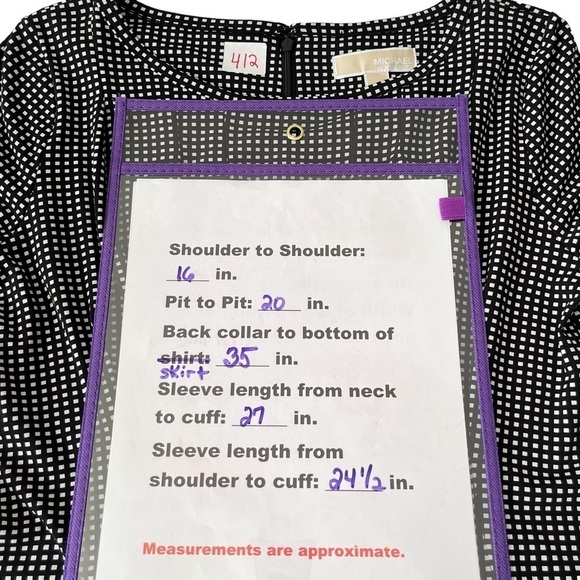 412
MICHAEL
Shoulder to Shoulder:
16 in.
Pit to Pit: 20 in.
Back collar to bottom of
shirt: 35 in.
skirt
Sleeve length from neck
to cuff: 27 in.
Sleeve length from
shoulder to cuff: 24 1/2 in.
Measurements are approximate.